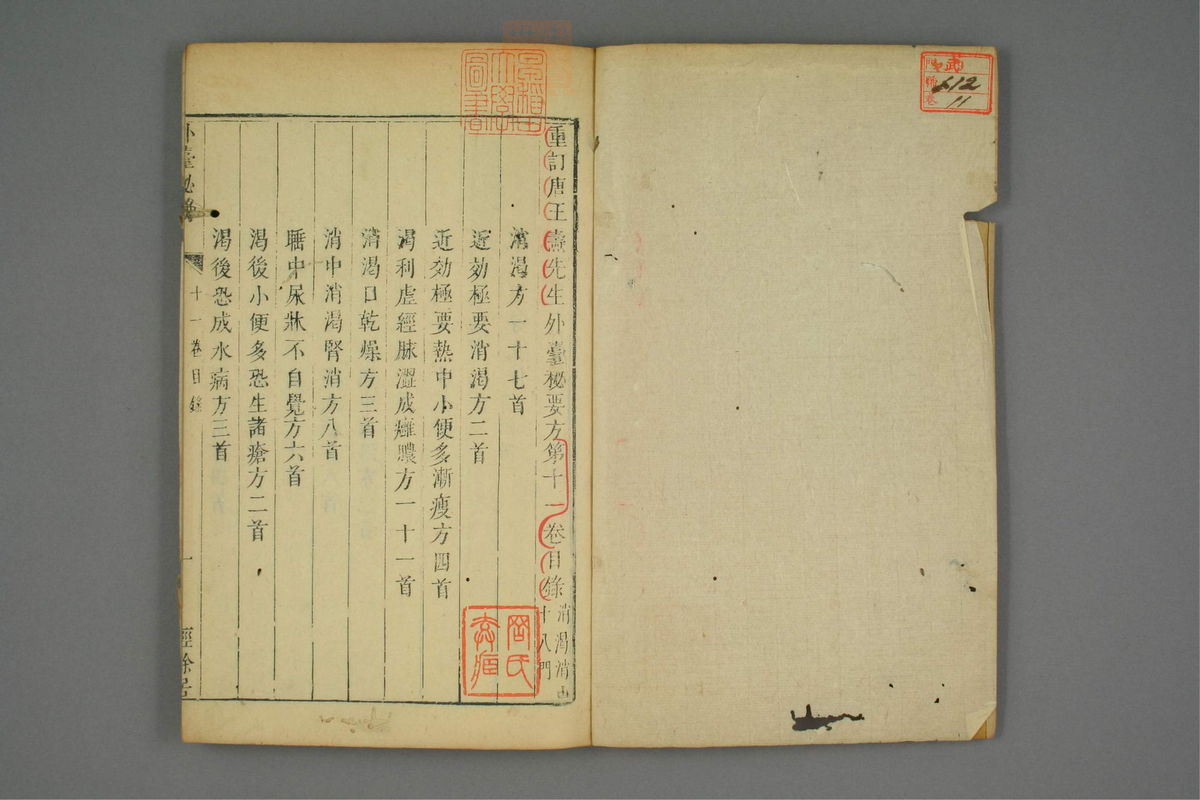 重訂唐王燾先生外臺秘要方第十一卷目錄
消渴消中
十八門
消渴方一十七首
近効極要消渴方二首
近効極要熱中小便多漸瘦方四首
渴利虛經脉澀成癰膿方一十一首
消渴口乾燥方三首
消中消渴腎消方八首
睡中尿牀不自覺方六首
渴後小便多恐生諸瘡方二首
渴後恐成水病方三首
外臺秘要
十一卷目錄
一
經餘居
早稻田大學圖書
612
11